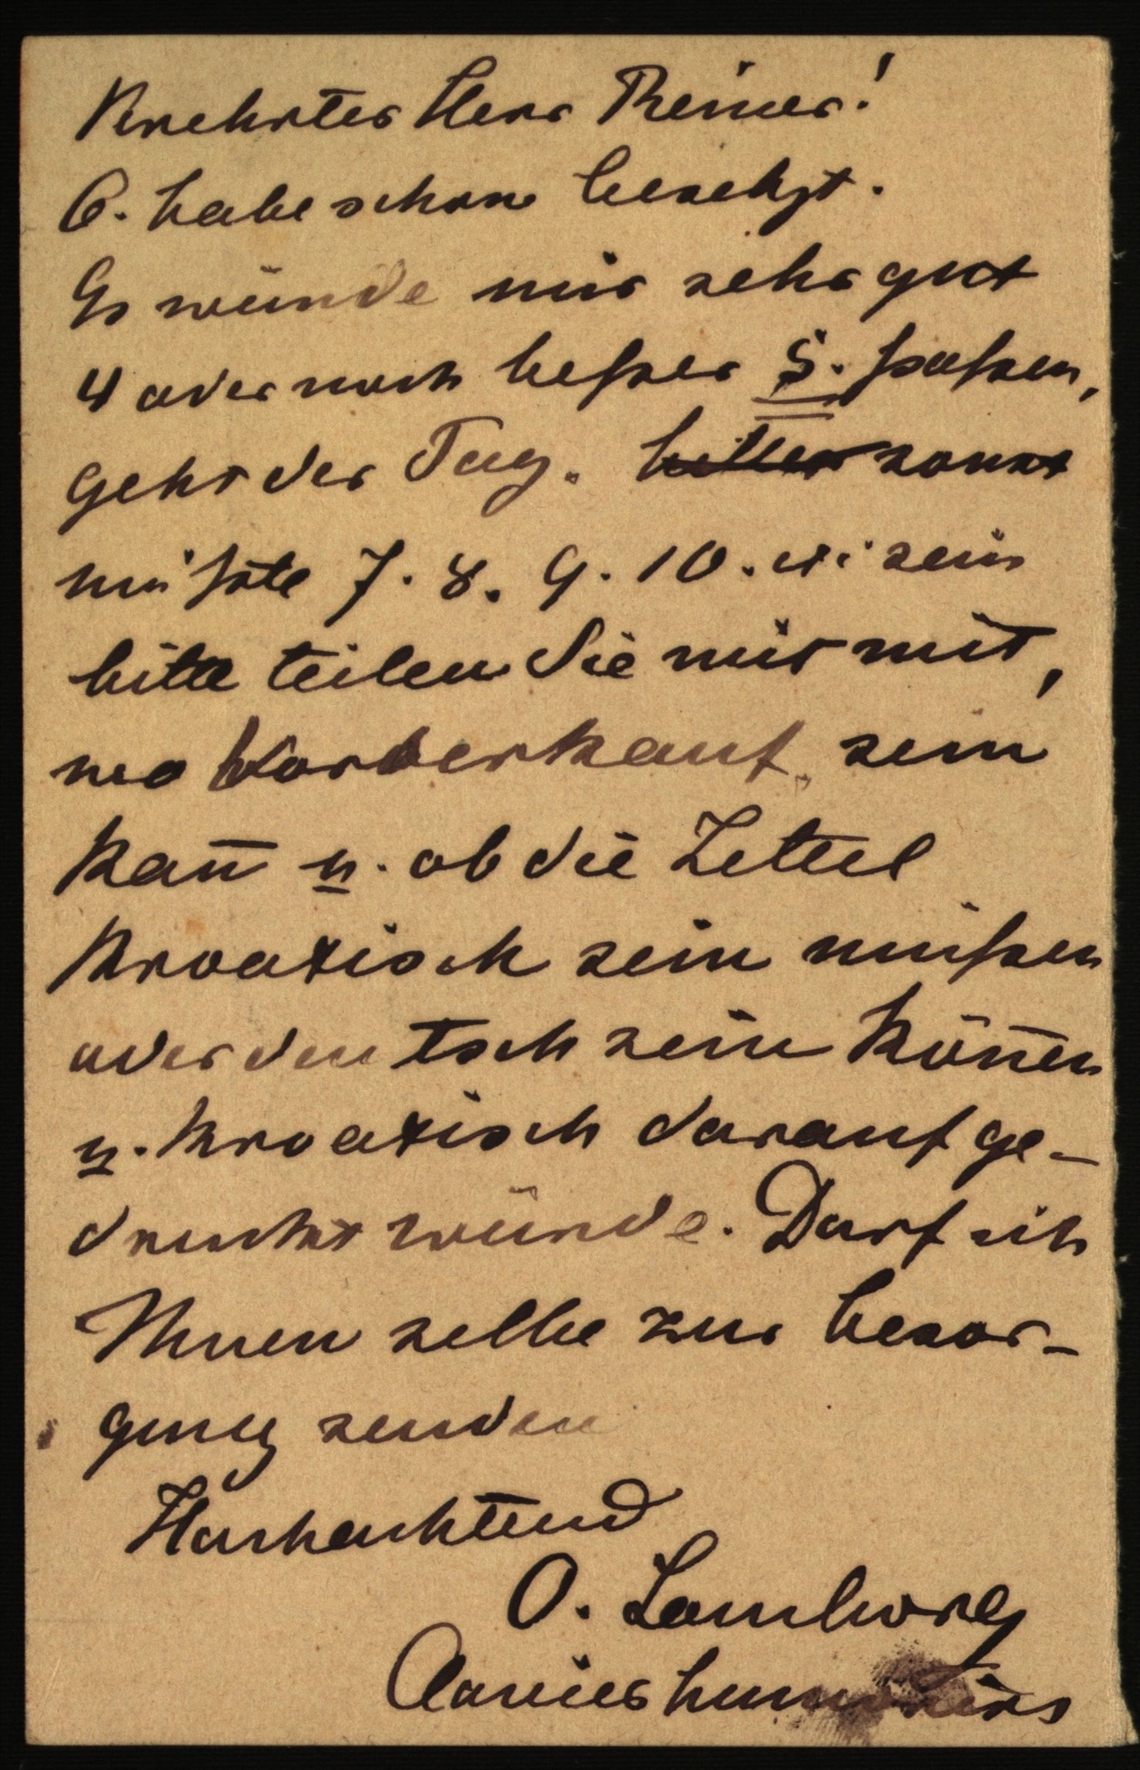 Verehrter Herr Reiner!
6. habe schon besetzt.
Es würde mir sehr gut
4 oder noch beßer 5. paßen,
geht der Tag. sonst
müßte 7. 8. 9. 10. sein
bitte teilen Sie mir mit,
wo Vorverkauf sein
kan̄ u. ob die Zettel
kroatisch sein müßen
oder deutsch sein kön̄en
u. kroatisch darauf ge-
druckt würde. Darf ich
Ihnen selbe zur besor-
gung senden
Hochachtend
O.